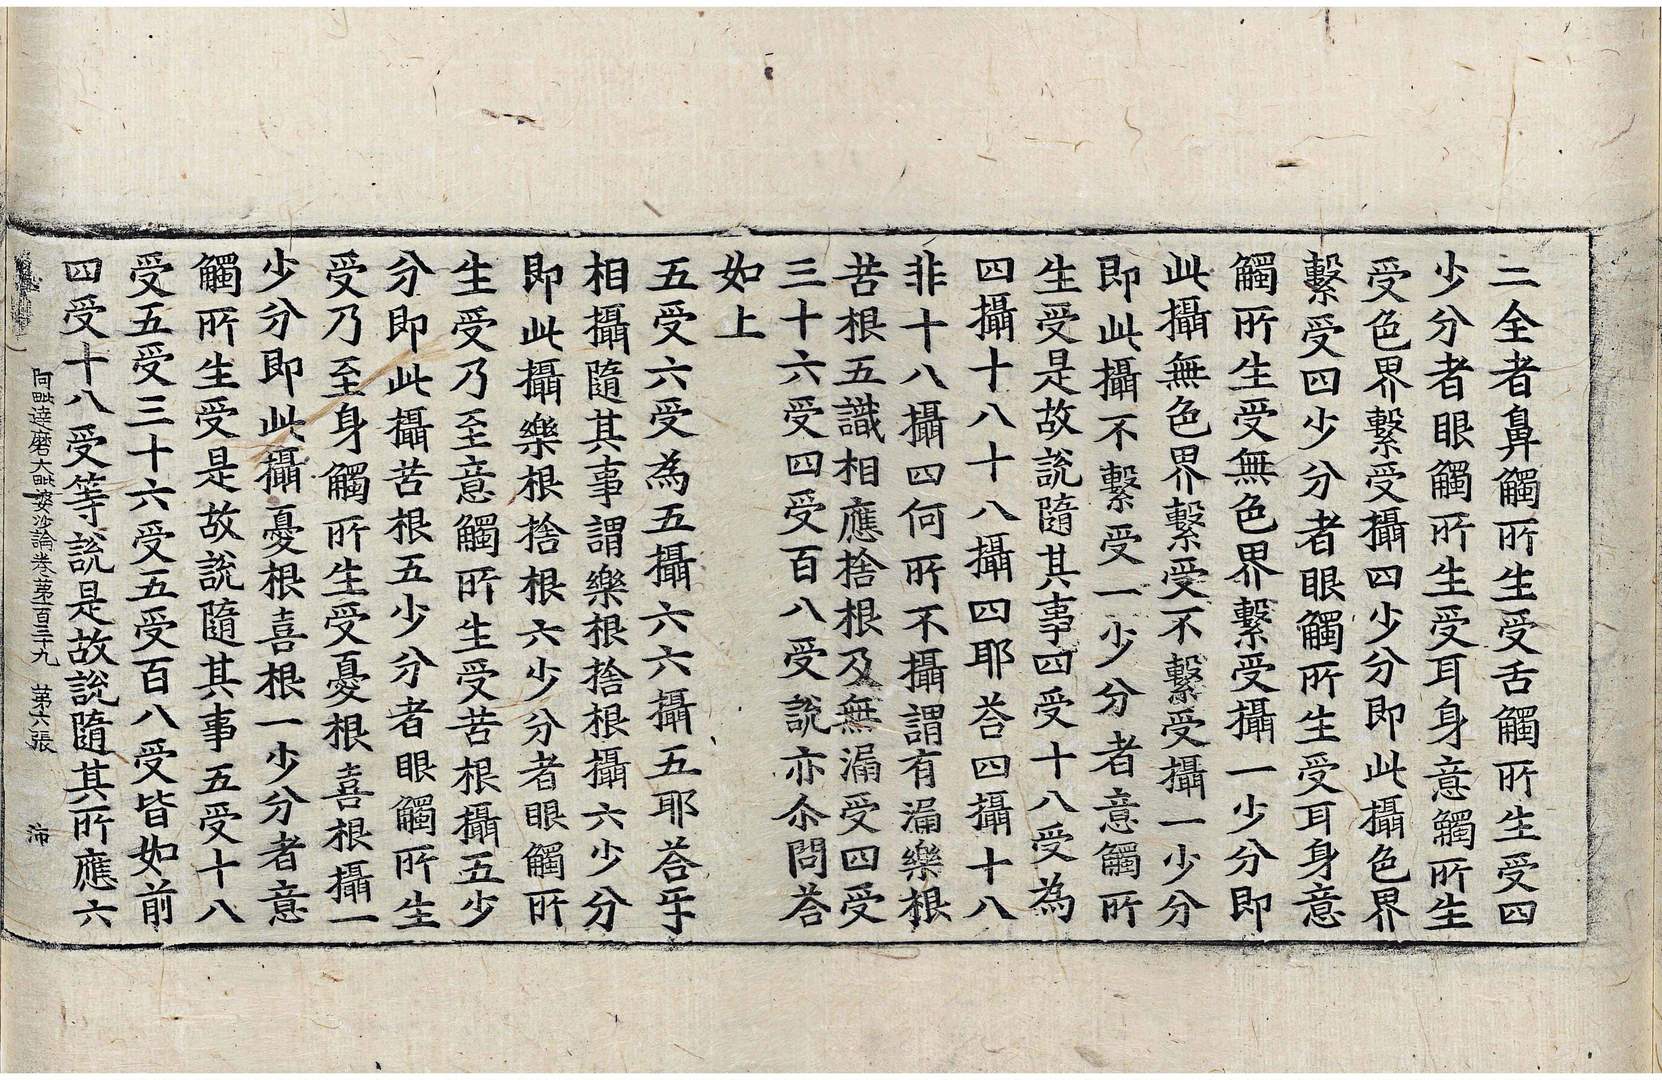 二全者鼻觸所生受舌觸所生受四
少分者眼觸所生受耳身意觸所生
受色界繫受攝四少分即此攝色界
繫受四少分者眼觸所生受耳身意
觸所生受無色界繫受攝一少分即
此攝無色界繫受不繫受攝一少分
即此攝不繫受一少分者意觸所
生受是故說隨其事四受十八受為
四攝十八十八攝四耶荅四攝十八
非十八攝四何所不攝謂有漏樂根
苦根五識相應捨根及無漏受四受
三十六受四受百八受說亦尒問荅
如上
五受六受為五攝六六攝五耶荅㸦
相攝隨其事謂樂根捨根攝六少分
即此攝樂根捨根六少分者眼觸所
生受乃至意觸所生受苦根攝五少
分即此攝苦根五少分者眼觸所生
受乃至身觸所生受憂根喜根攝一
少分即此攝憂根喜根一少分者意
觸所生受是故說隨其事五受十八
受五受三十六受五受百八受皆如前
四受十八受等說是故說隨其所應六
阿毗達磨大毗婆沙論卷第一百三十九 第六張 沛